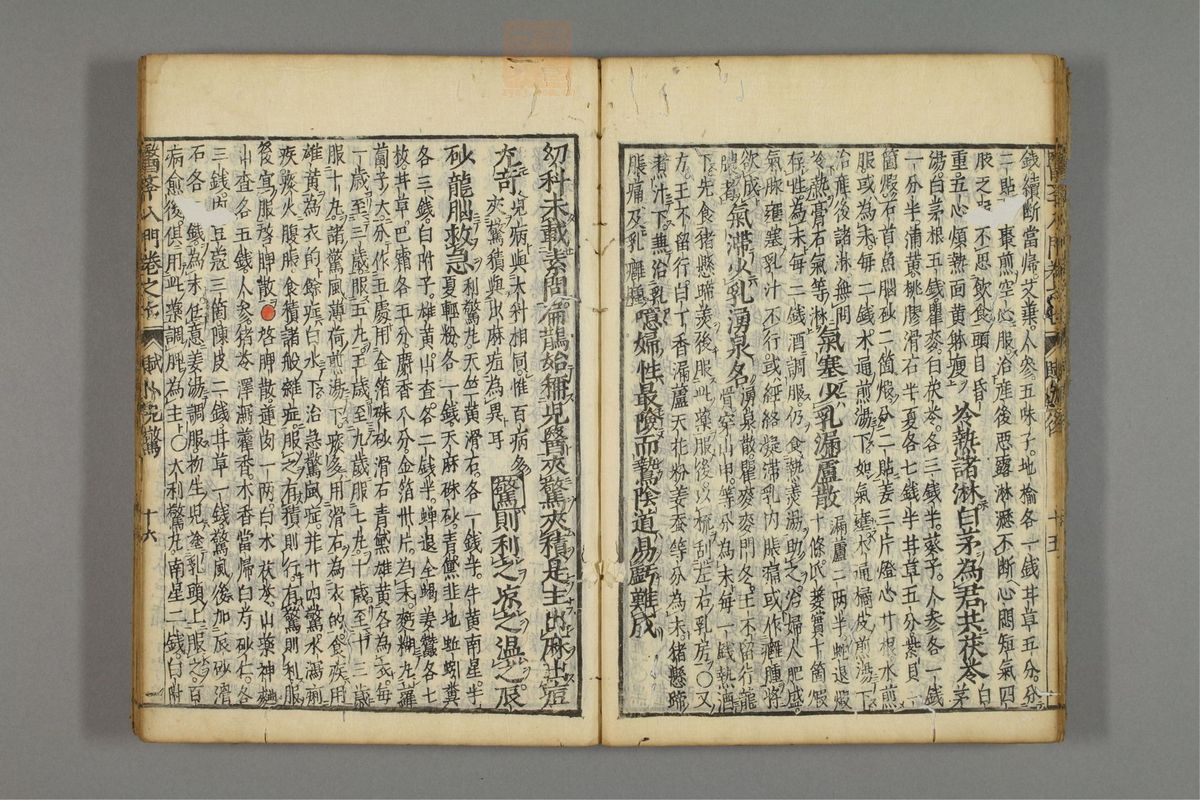 錢續断當歸艾葉人參五味子地榆各一錢甘草五分分
二貼棗煎空心服治産後惡露淋瀝不断心悶短氣四
肢之不思飲食頭目昏
重五心煩熱面黄體瘦冷熱諸淋白茅為君共茯苓
湯白茅根五錢瞿麥白茯苓各三錢半葵子人参各一錢
一分半蒲黄桃膠滑石半夏各七錢半甘草五分紫貝二
箇煅石首魚腦砂二箇煅分二貼姜三片燈心廾根水煎
服或為末每二錢木通煎湯下如氣壅木通橘皮煎湯下
治産後諸淋無問
冷熱膏石氣等淋氣塞少乳漏盧散
漏盧二両半蝉退煅十條瓜蔞實十箇煅
存性為末每二錢酒調服仍食熱羡湯助之治婦人肥盛
氣脉壅塞乳汁不行或經絡凝滯乳内脹痛或作癰腫將
欲成氣滞少乳湧泉名湧泉散瞿麥麥門冬王不留行龍
骨穿山甲等分為末每一錢熱酒
下先食猪懸蹄羡後服此藥服後以梳刮左右乳房○又
方王不留行白丁香漏蘆天花粉姜蚕等分為末猪懸蹄
煮汁下無治乳
脹痛及乳癰噫婦性最險而鷙陰道易虧難成
醫學入門 賦婦後 十五
幼科未載素問扁鵲始稱兒醫夾驚夾積是主出麻出痘
尤奇兒病與大科相同惟百病多
夾驚積與出麻痘為異耳驚則利之凉之温之辰
砂龍腦救急
利驚丸天竺黄滑石各一錢半牛黄南星半
夏輕粉各一錢天麻硃砂青黛韭地蚯蚓糞
各三錢白附子雄黄山査各二錢半蝉退全蝎姜蠶各七
枚甘草巴霜各五分麝香八分金箔卅片為末麪糊丸蘿
蔔子大分作五處用金箔硃砂滑石青黛雄黄各為衣每
一歲至三歲服五九五歲至九歲服七九十歲至十三歲
服十九諸驚風薄荷煎湯下痰多用滑石為衣的食疾用
雄黄為衣的餘症白水下治急驚風症并廾四驚水瀉痢
疾痰火腹脹食積諸般雜症服之有積則行有驚則利服
後宜服啓脾散啓脾散蓮肉一両白朮茯苓山藥神麯
山査各五錢人參猪苓澤瀉藿香木香當歸白芍砂仁各
三錢肉豆蔻三箇陳皮二錢甘草一錢驚風後加辰砂滑
石各錢為末任意姜湯調服初生兒塗乳頭上服之百
病愈後俱用此藥調脾為主○大利驚丸南星二錢白附
醫學入門卷之六 賦小兒驚 十六